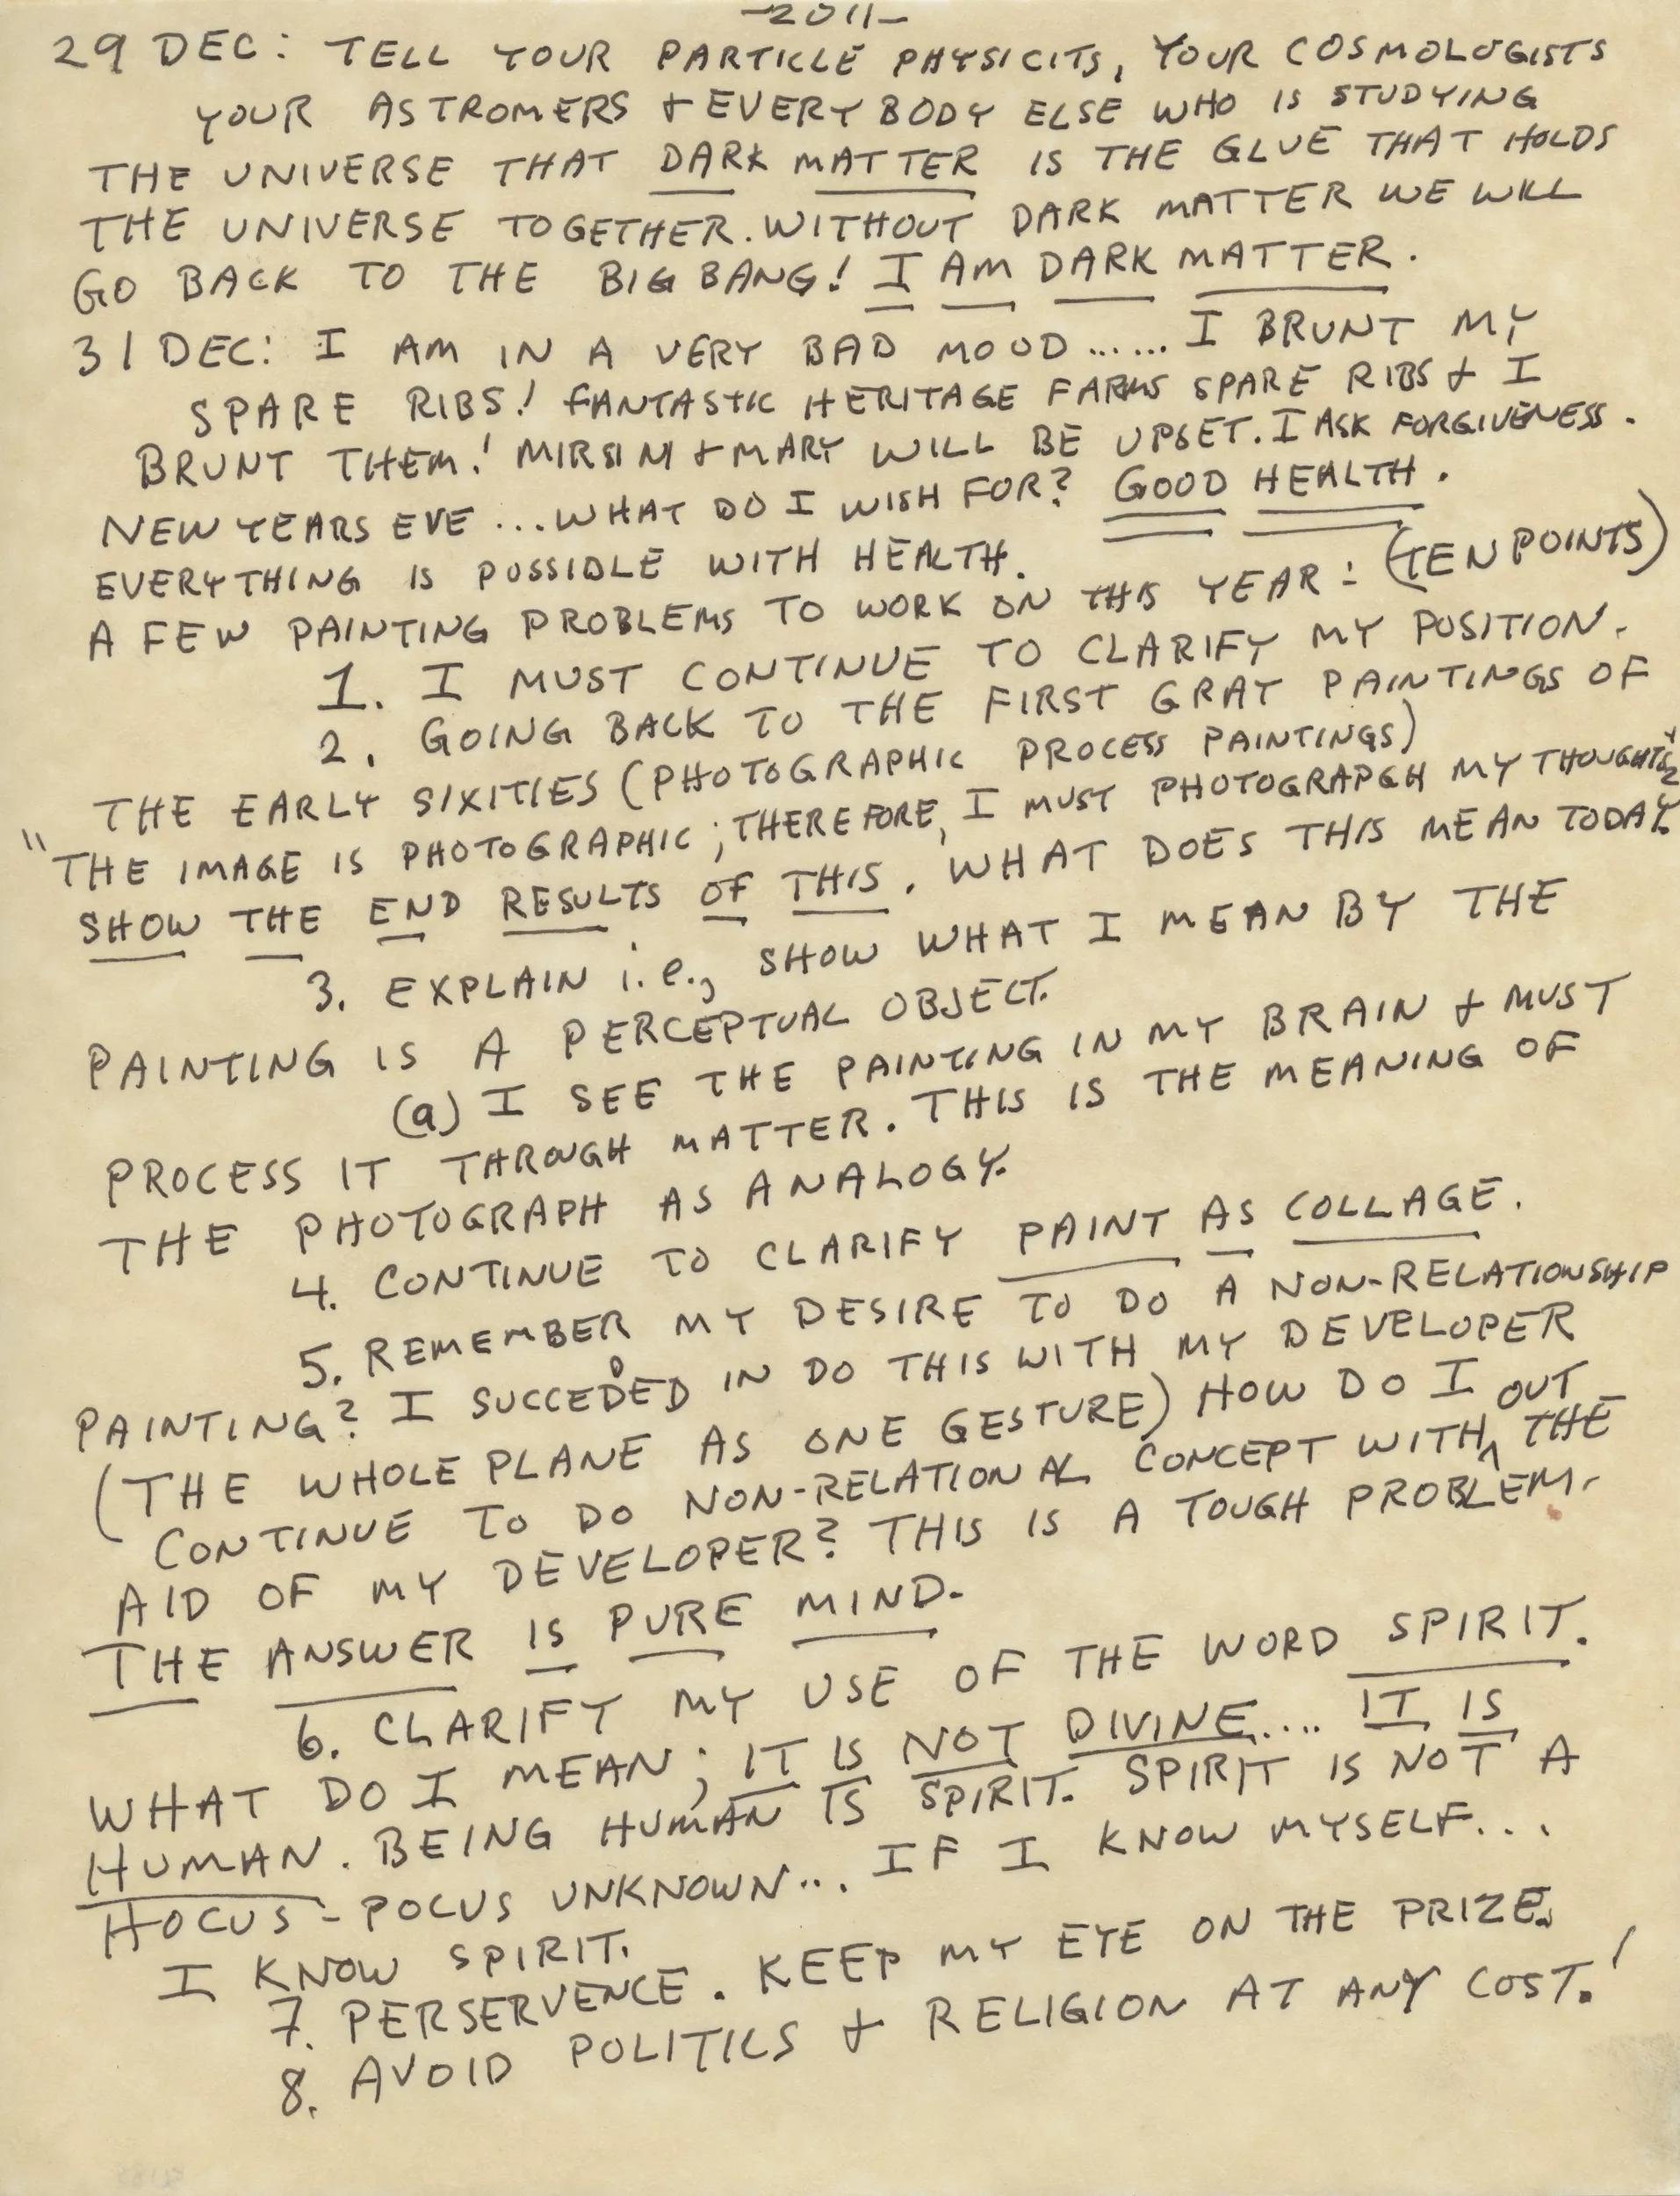 -2011-
29 DEC: TELL YOUR PARTICLE PHYSICITS, YOUR COSMOLOGISTS
YOUR ASTROMERS & EVERY BODY ELSE WHO IS STUDYING
THE UNIVERSE THAT DARK MATTER IS THE GLUE THAT HOLDS
THE UNIVERSE TOGETHER. WITHOUT DARK MATTER WE WILL
GO BACK TO THE BIG BANG! I AM DARK MATTER.
31 DEC: I AM IN A VERY BAD MOOD ...... I BRUNT MY
SPARE RIBS! FANTASTIC HERITAGE FARMS SPARE RIBS & I
BRUNT THEM! MIRSINI & MARY WILL BE UPSET. I ASK FORGIVENESS.
NEW YEARS EVE ... WHAT DO I WISH FOR? GOOD HEALTH.
EVERYTHING IS POSSIBLE WITH HEALTH.
A FEW PAINTING PROBLEMS TO WORK ON THIS YEAR: (TEN POINTS)
1. I MUST CONTINUE TO CLARIFY MY POSITION.
2. GOING BACK TO THE FIRST GRAY PAINTINGS OF
THE EARLY SIXITIES (PHOTOGRAPHIC PROCESS PAINTINGS)
"THE IMAGE IS PHOTOGRAPHIC; THEREFORE, I MUST PHOTOGRAPGH MY THOUGHTS"
SHOW THE END RESULTS OF THIS. WHAT DOES THIS MEAN TODAY?
3. EXPLAIN i.e., SHOW WHAT I MEAN BY THE
PAINTING IS A PERCEPTUAL OBJECT.
(a) I SEE THE PAINTING IN MY BRAIN & MUST
PROCESS IT THROUGH MATTER. THIS IS THE MEANING OF
THE PHOTOGRAPH AS ANALOGY.
4. CONTINUE TO CLARIFY PAINT AS COLLAGE.
5. REMEMBER MY DESIRE TO DO A NON-RELATIONSHIP
PAINTING? I SUCCEDED IN DO THIS WITH MY DEVELOPER
(THE WHOLE PLANE AS ONE GESTURE) HOW DO I
CONTINUE TO DO NON-RELATIONAL CONCEPT WITHOUT THE
AID OF MY DEVELOPER? THIS IS A TOUGH PROBLEM.
THE ANSWER IS PURE MIND.
6. CLARIFY MY USE OF THE WORD SPIRIT.
WHAT DO I MEAN; IT IS NOT DIVINE.... IT IS
HUMAN. BEING HUMAN IS SPIRIT. SPIRIT IS NOT A
HOCUS-POCUS UNKNOWN... IF I KNOW MYSELF...
I KNOW SPIRIT.
7. PERSERVENCE. KEEP MY EYE ON THE PRIZE.
8. AVOID POLITICS & RELIGION AT ANY COST!